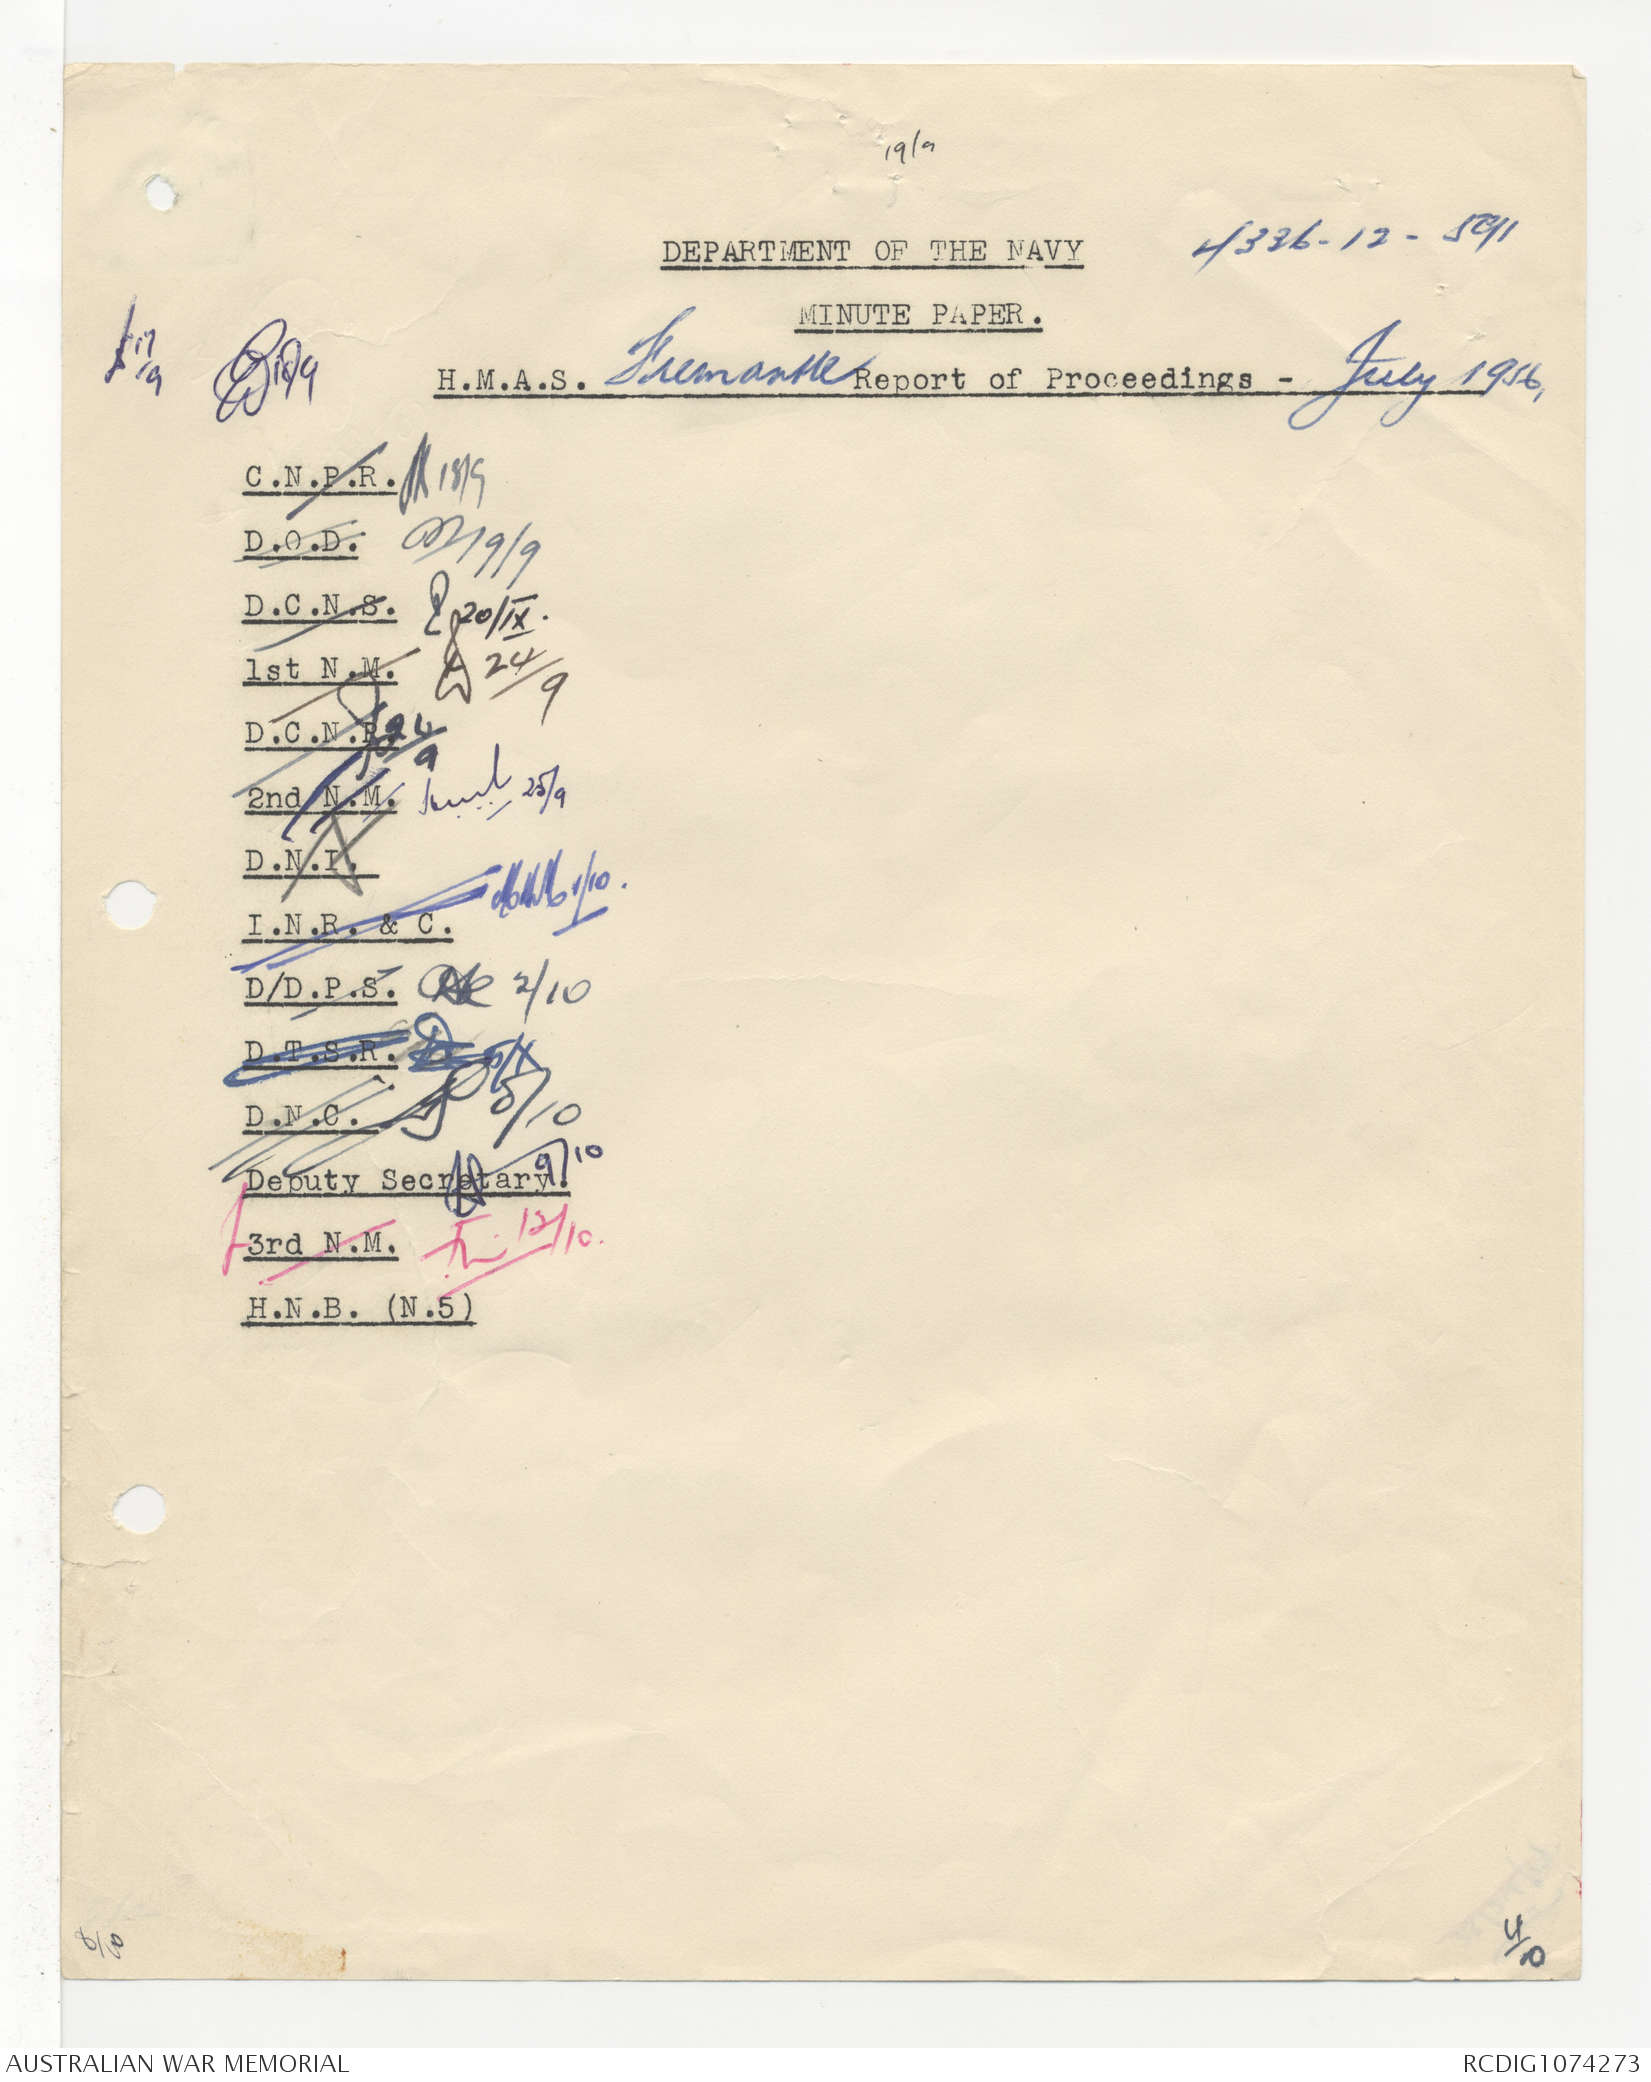 19/9
DEPARTMENT OF THE NAVY
4336-12-
MINUTE PAPER.
17/9
18/9
H.M.A.S. Fremantle Report of Proceedings - July 1956,
C.N.P.R. 18/9
D.O.D. 19/9
D.C.N.S. 20/IX.
1st N.M. 24/9
D.C.N.P. 24/9
2nd N.M. 25/9
D.N.I.
I.N.R. & C. 1/10.
D/D.P.S. 2/10
D.T.S.R. 5/X
D.N.C. 5/10
Deputy Secretary. 9/10
3rd N.M. 12/10.
H.N.B. (N.5)
4/10
AUSTRALIAN WAR MEMORIAL
RCDIG1074273